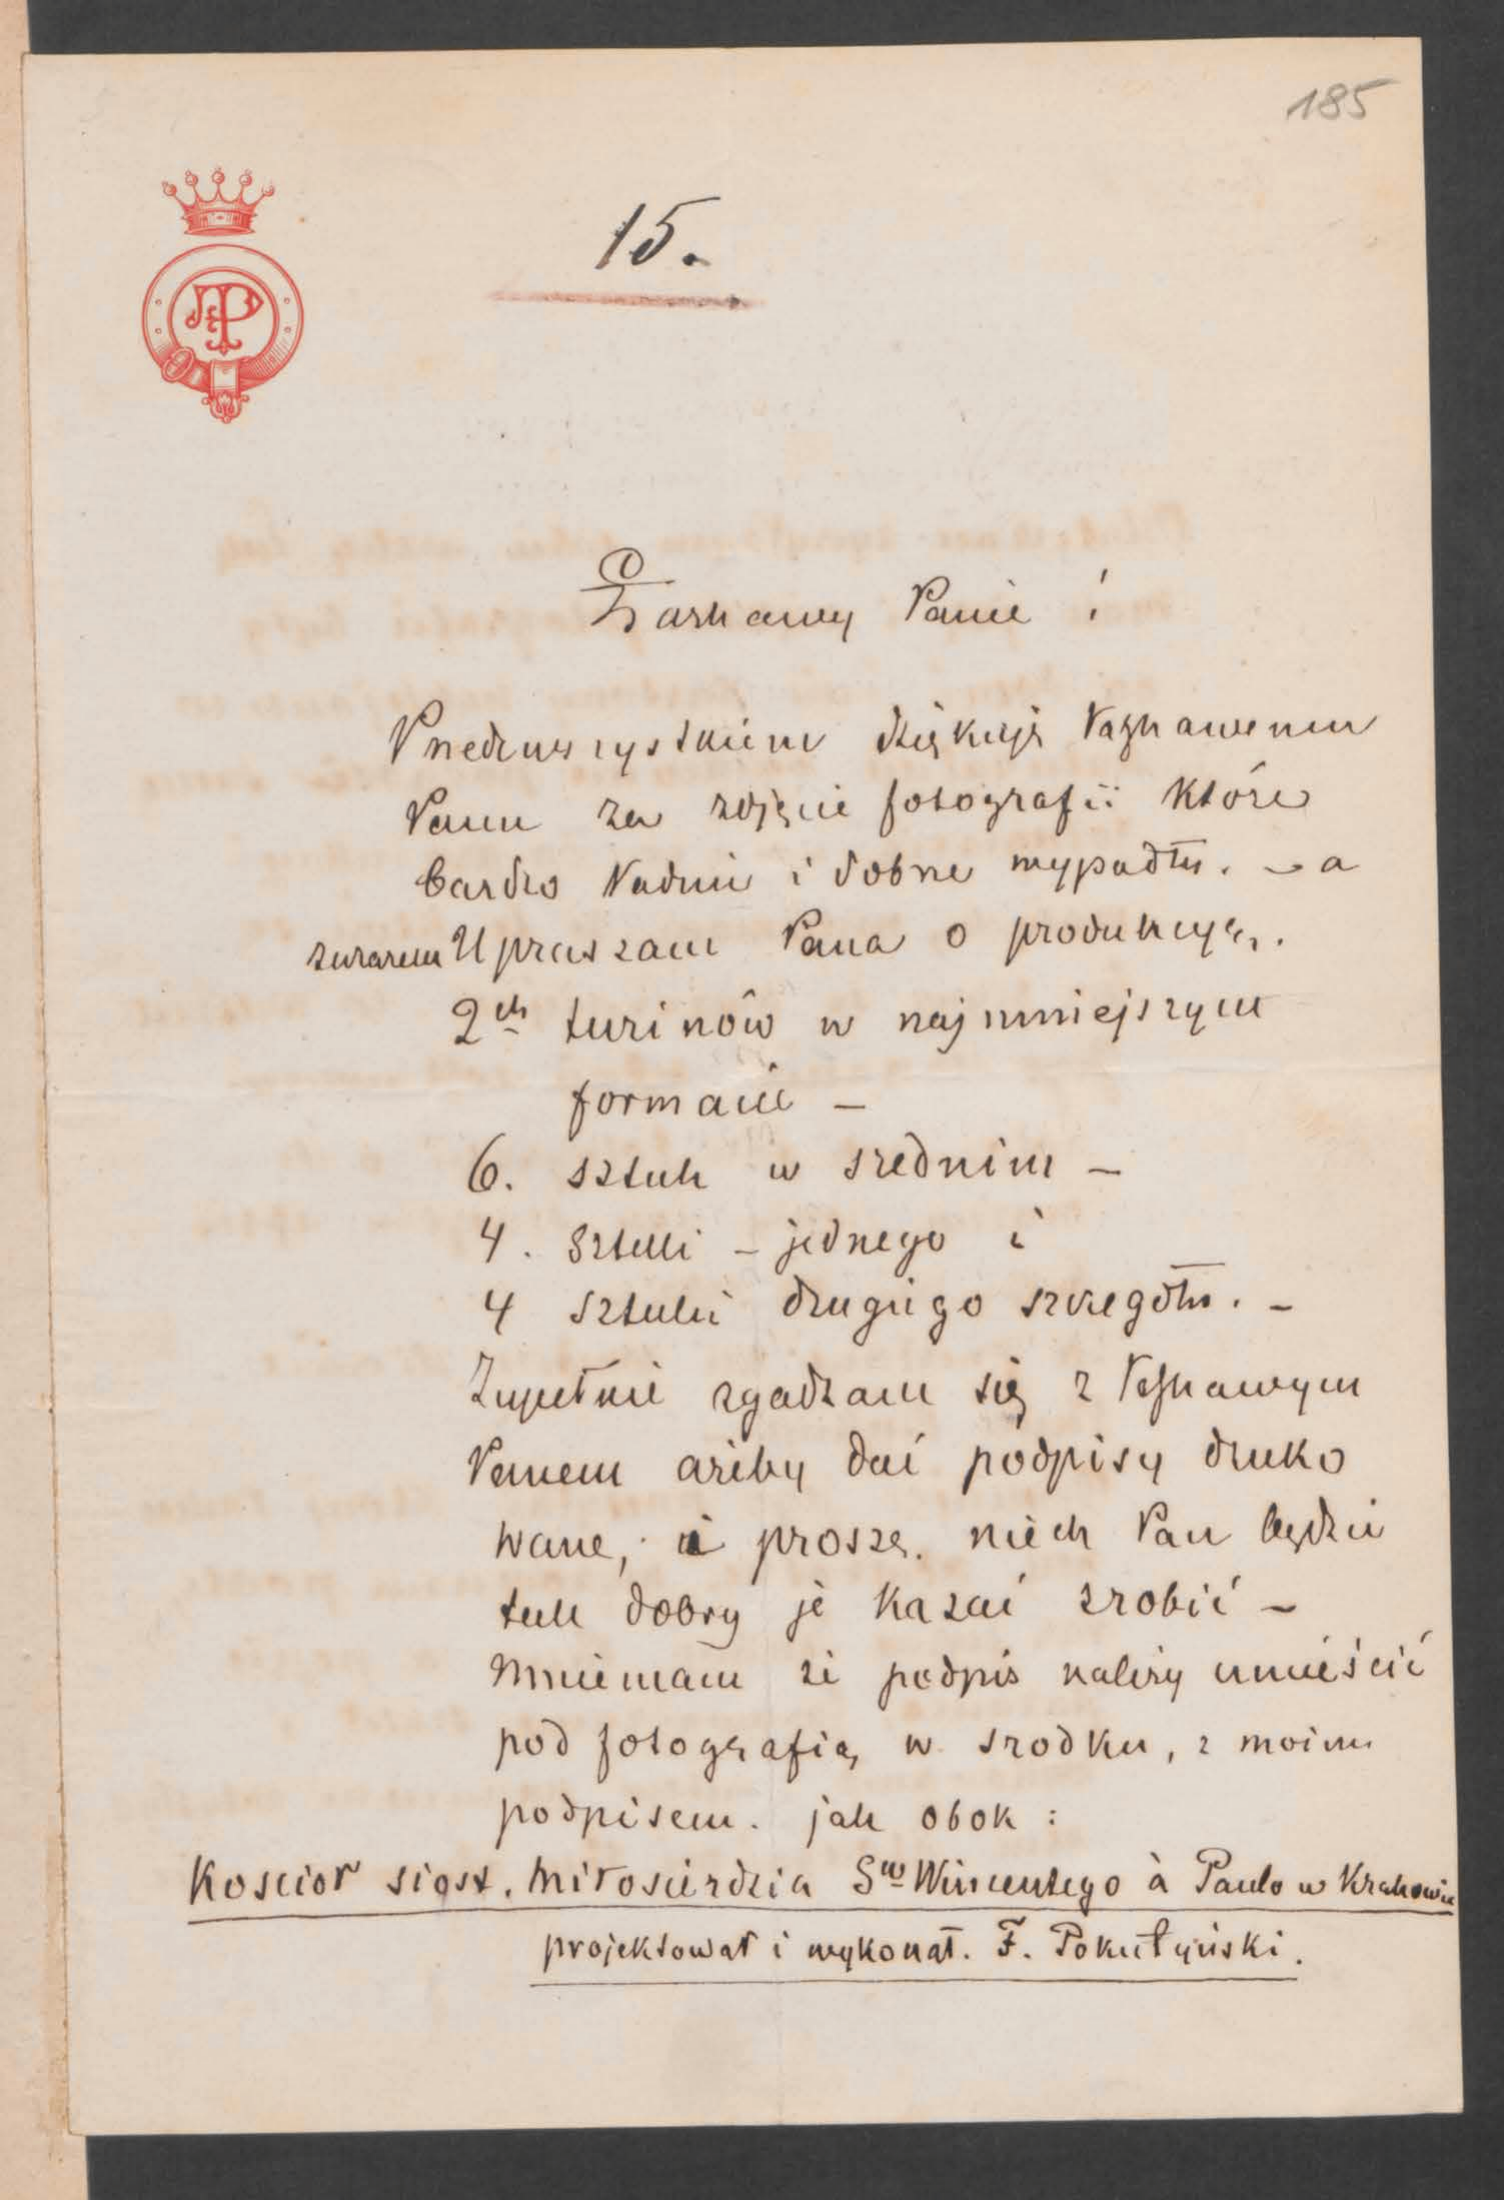 185
15.
Łaskawy Panie !
Przedewszystkiem dziękuję Łaskawemu
Panu za zdjęcie fotografii które
bardzo ładnie i dobrze wypadły. – a
zarazem Upraszam Pana o produkcyę.
2ch tuzinów w najmniejszym
formacie –
6. sztuk w srednim –
4. sztuki – jednego i
4 sztuki drugiego szczegółu. –
Zupełnie zgadzam się z Łaskawym
Panem ażeby dać podpisy druko
wane, i proszę. niech Pan będzie
tak dobry je kazać zrobić –
Mniemam że podpis należy umieścić
pod fotografią w srodku, z moim
podpisem. jak obok :
Koscioł siost. Miłosierdzia Sw Wincentego à Paulo w Krakowie
projektował i wykonał. F. Pokutyński.